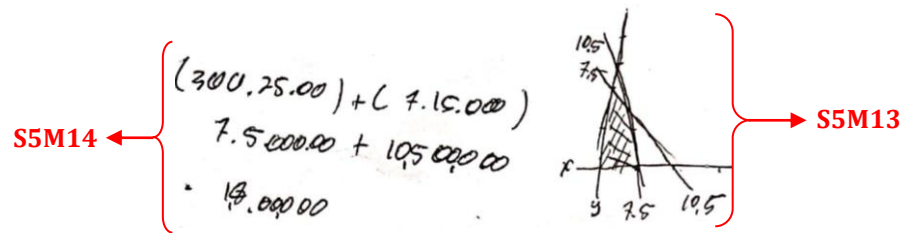 S5M14
(300.25.00) + ( 7.15.000)
7.500000 + 10,500,000
18.00000
10,5
7.5
x
y
7.5
10,5
S5M13